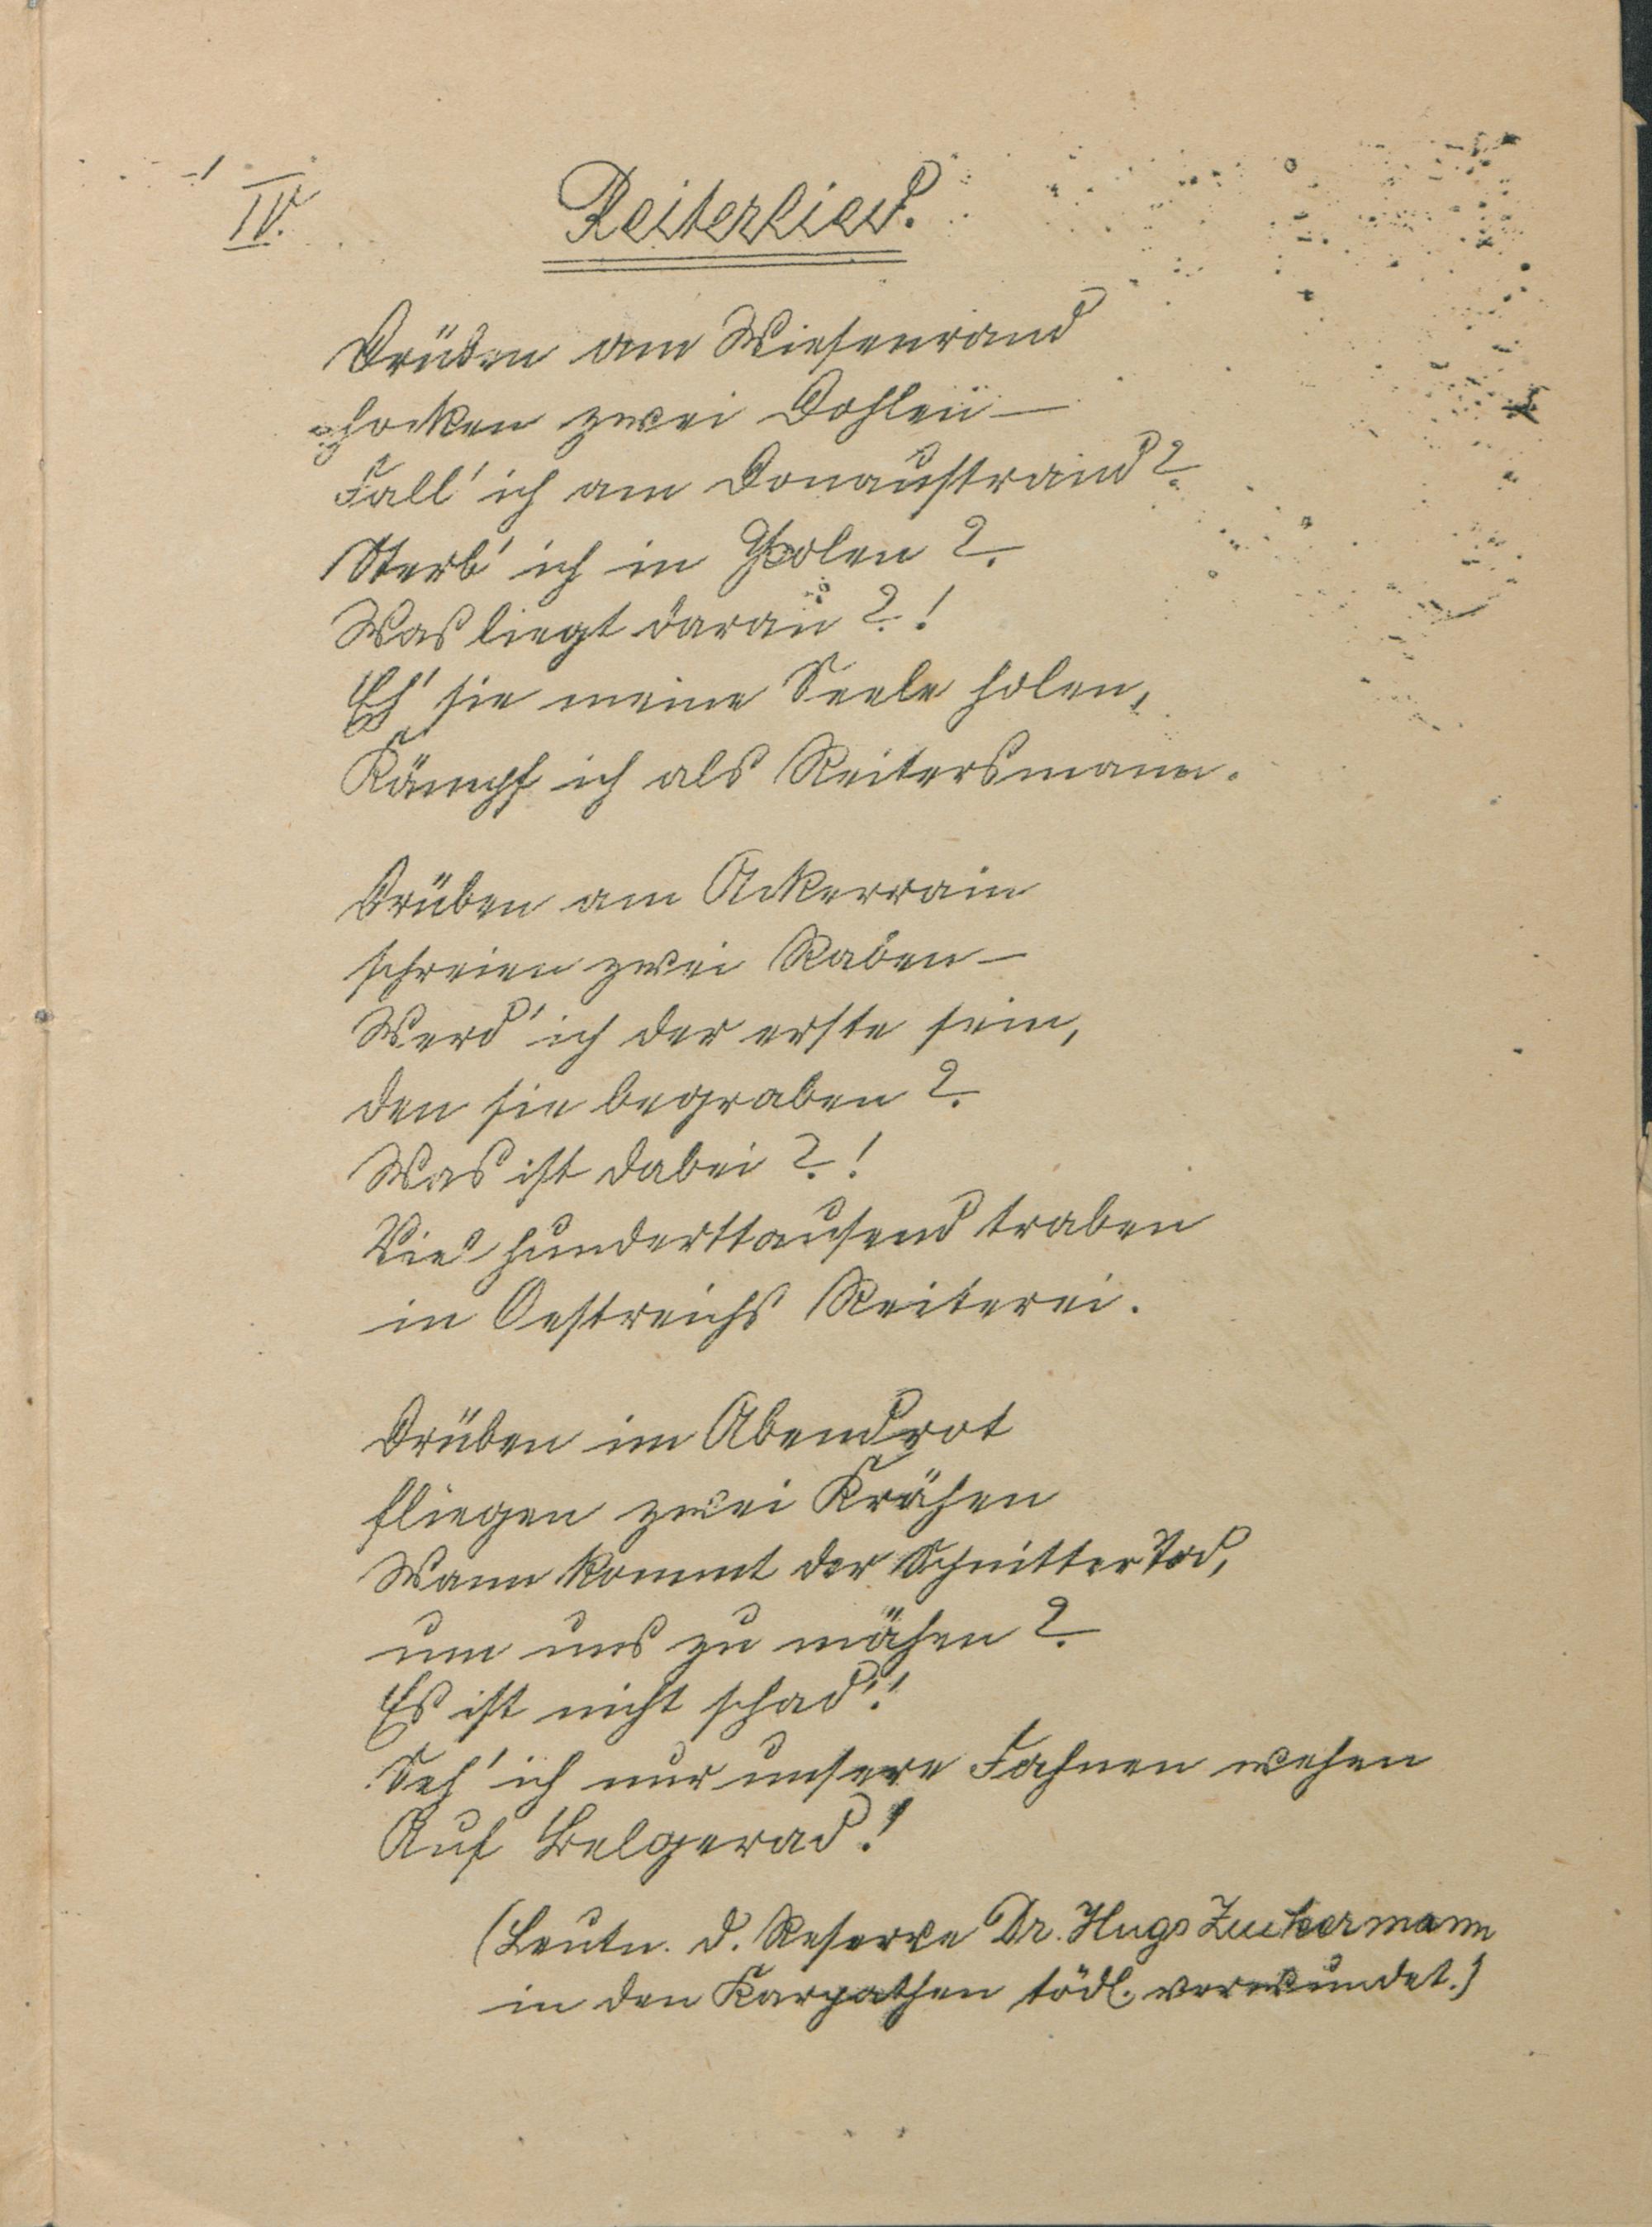 IV.
Reiterlied.
Drüben am Wiesenrand
hocken zwei Dohlen –
Fall' ich am Donaustrand?
Sterb' ich in Polen?
Was liegt daran?!
Eh' sie meine Seele holen,
Kämpf ich als Reitersmann.
Drüben am Ackerrain
schreien zwei Raben –
Werd' ich der erste sein,
den sie begraben?
Was ist dabei?!
Viel hunderttausend traben
in Oestreichs Reiterei.
Drüben im Abendrot
fliegen zwei Krähen
Wann kommt der Schnitter Tod,
um uns zu mähen?
Es ist nicht schad'!
Seh' ich nur unsere Fahnen wehen
Auf Belgerad!
(Leutn. d. Reserve Dr. Hugo Zuckermann
in den Karpathen tödl. verwundet.)